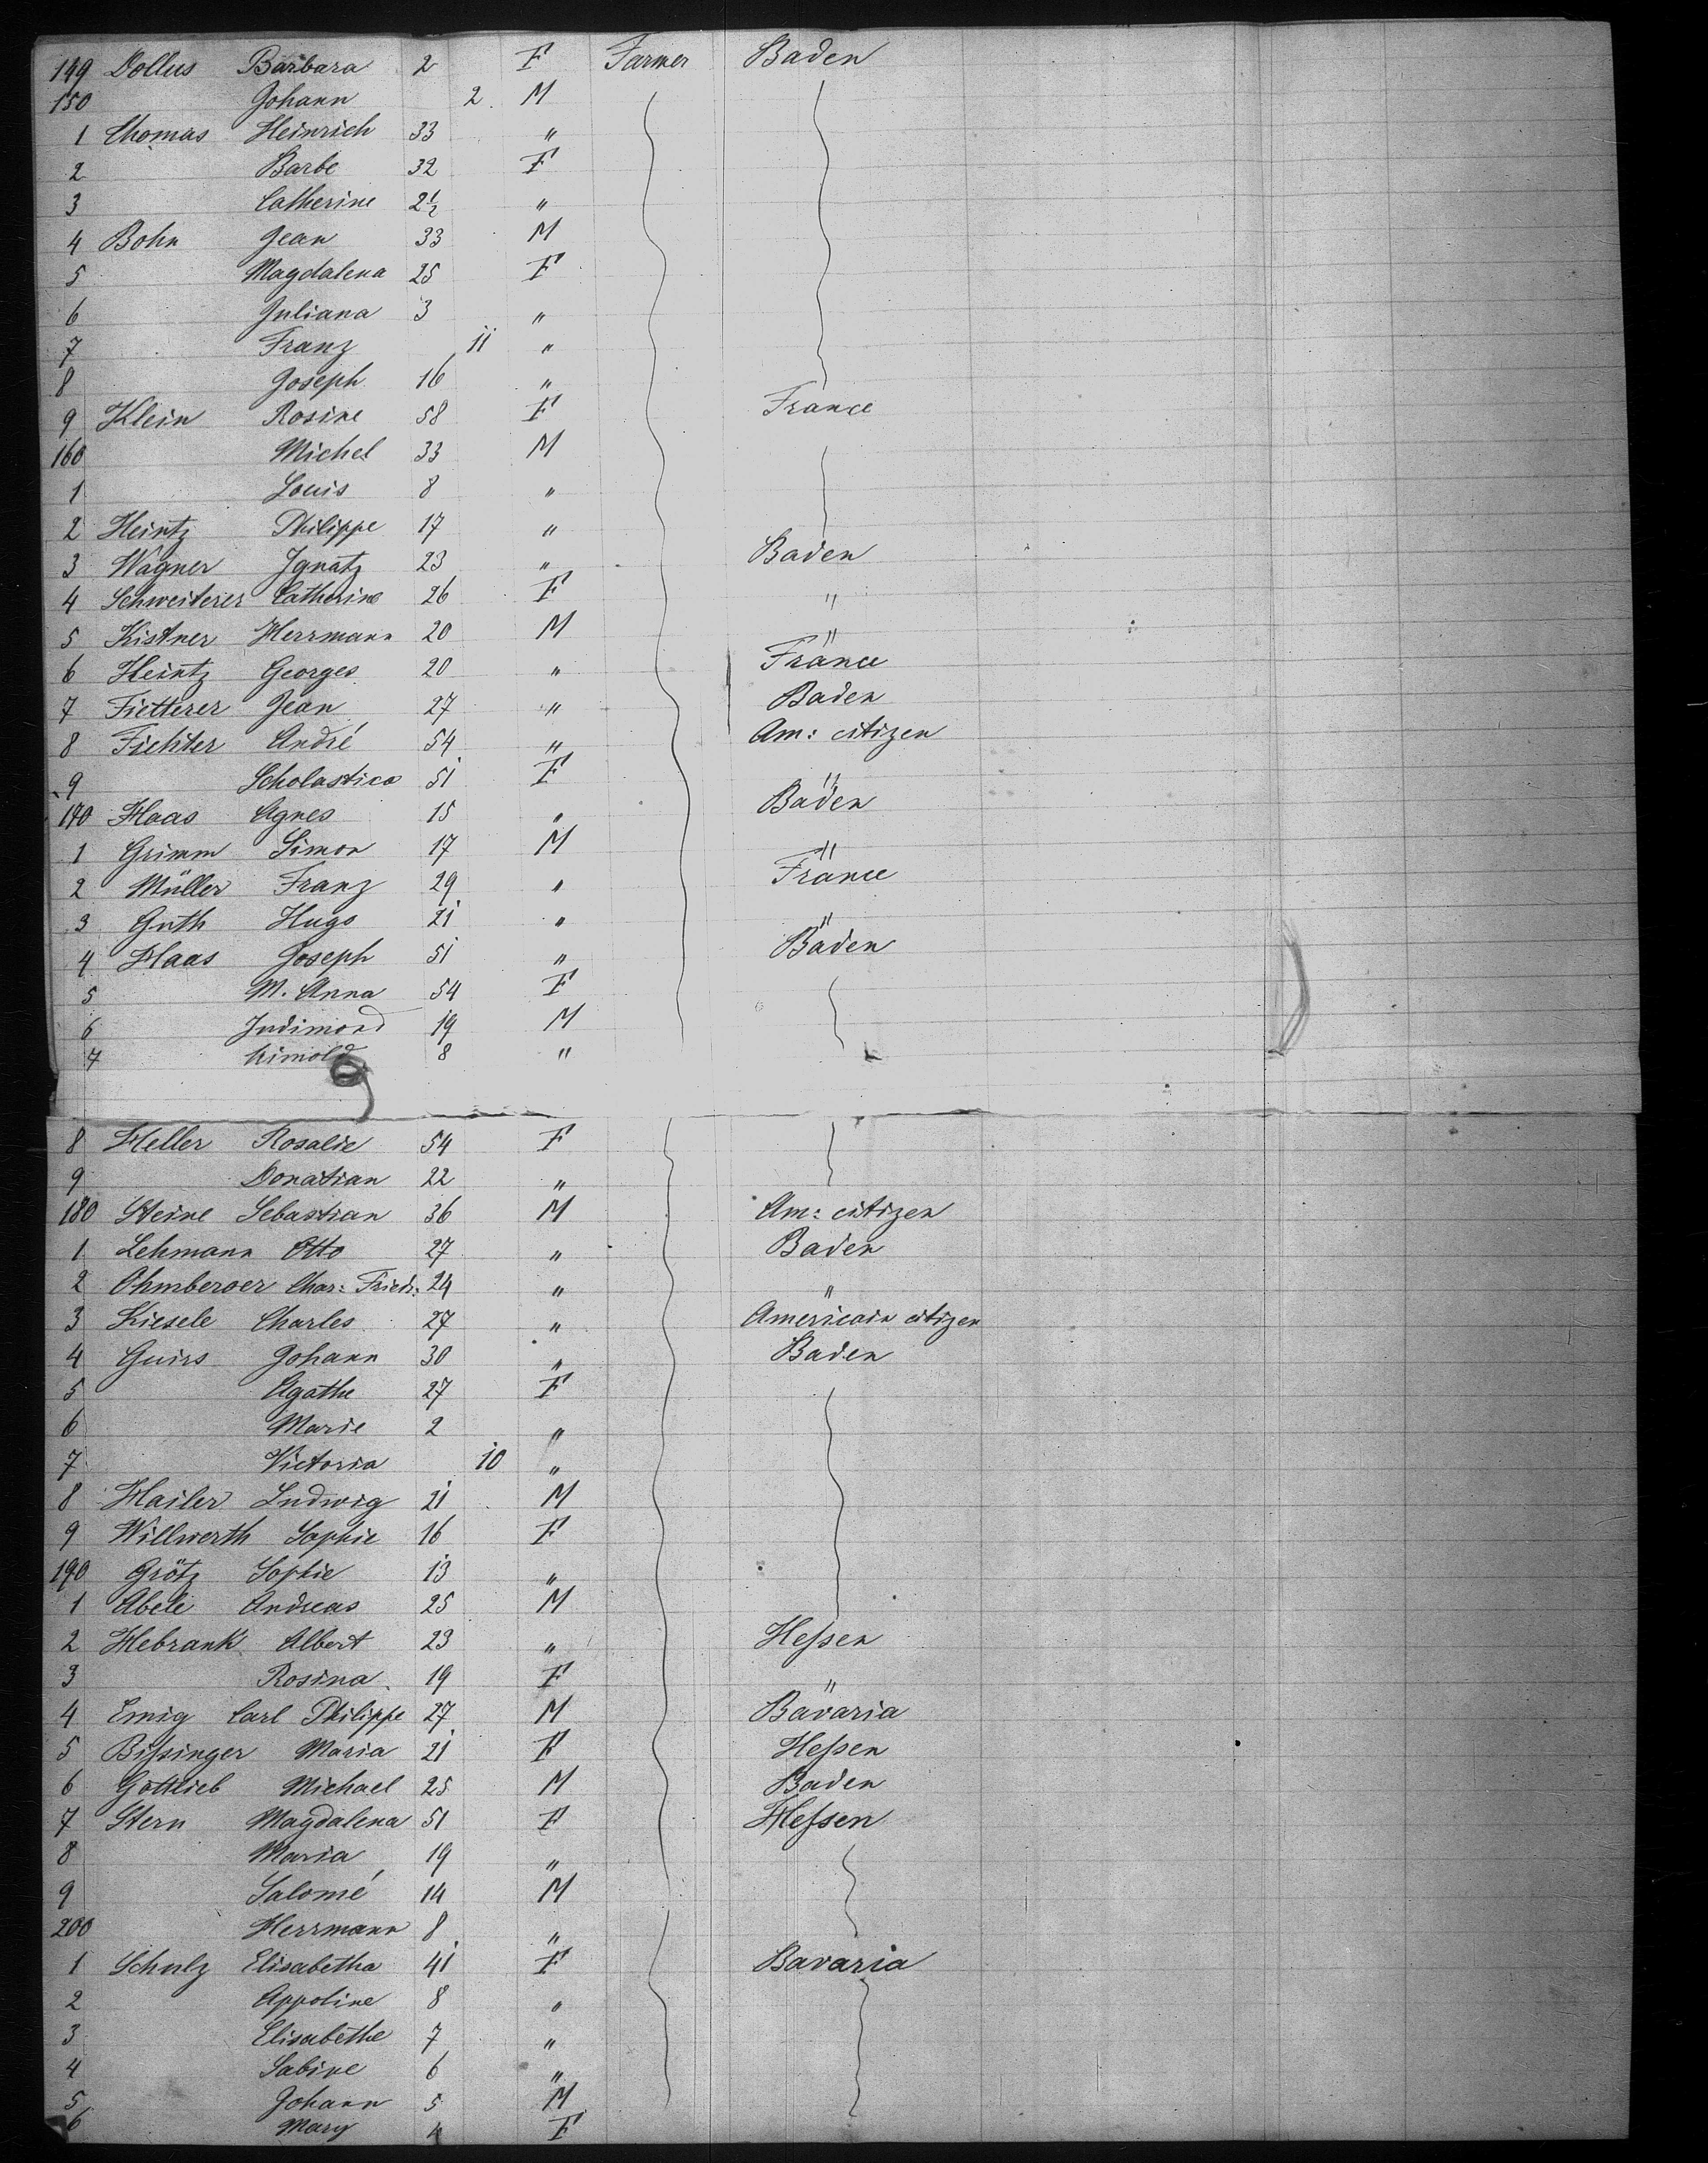 149 Dollus Barbara 2 F Farmer Baden
150 Johann 2 M
1 Thomas Heinrich 33 "
2 Barbe 32 F
3 Catherine 2½ "
4 Bohn Jean 33 M
5 Magdalena 25 F
6 Juliana 3 "
7 Franz 11 "
8 Joseph 16 "
9 Klein Rosine 58 F France
160 Michel 33 M
1 Louis 8 "
2 Heintz Philippe 17 "
3 Wagner Ignatz 23 " Baden
4 Schweiterer Catherine 26 F "
5 Kistner Herrmann 20 M "
6 Heintz Georges 20 " France
7 Fietterer Jean 27 " Baden
8 Fichter André 54 " Am: citizen
9 Scholastica 51 F "
170 Haas Agnes 15 " Baden
1 Grimm Simon 17 M "
2 Müller Franz 29 " France
3 Guth Hugo 21 " "
4 Haas Joseph 51 " Baden
5 M. Anna 54 F
6 19 M
7 8 "
8 Heller Rosalie 54 F
9 Donatian 22 "
180 Steine Sebastian 36 M Am: citizen
1 Lehmann Otto 27 " Baden
2 Ohmberger Char: Friedr: 24 " "
3 Kiesele Charles 27 " American citizen
4 Guirs Johann 30 " Baden
5 Agathe 27 F
6 Marie 2 "
7 Victoria 10 "
8 Hailer Ludwig 21 M
9 Willwerth Sophie 16 F
190 Grötz Sophie 13 "
1 Abele Andreas 25 M
2 Hebrank Albert 23 " Heſsen
3 Rosina 19 F "
4 Emig Carl Philippe 27 M Bavaria
5 Biſsinger Maria 21 F Heſsen
6 Gottlieb Michael 25 M Baden
7 Stern Magdalena 51 F Heſsen
8 Maria 19 "
9 Salomé 14 M
200 Herrmann 8 "
1 Schulz Elisabetha 41 F Bavaria
2 Appoline 8 "
3 Elisabethe 7 "
4 Sabine 6 "
5 Johann 5 M
6 Mary 4 F